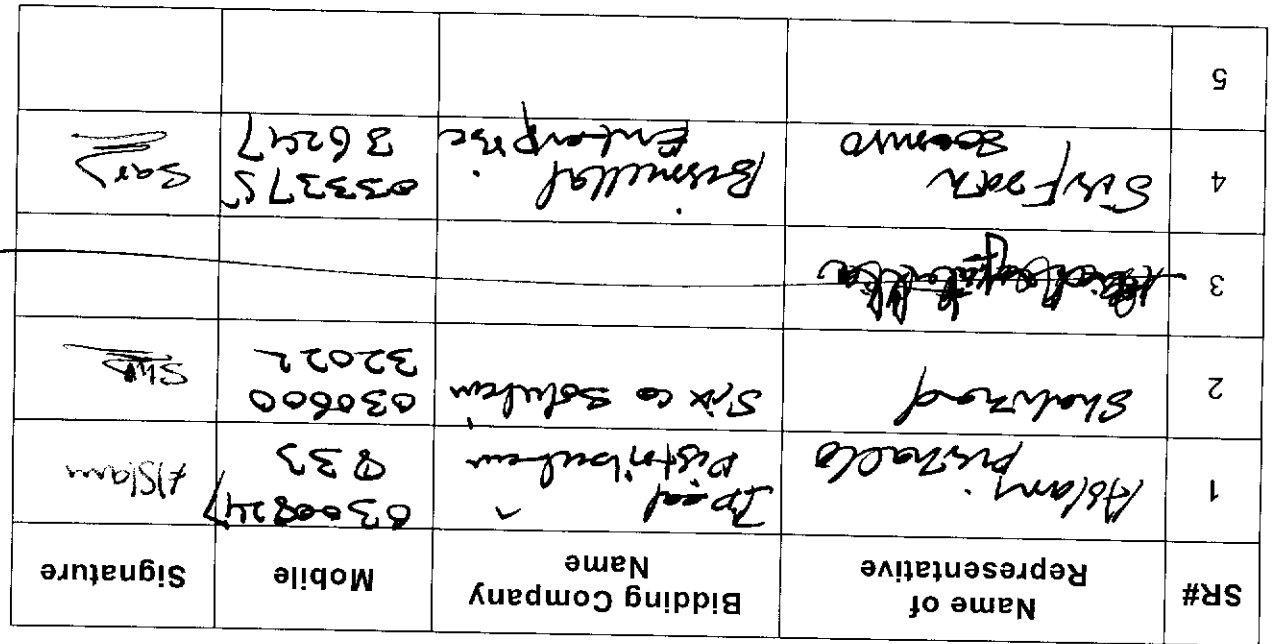 SR#
Name of
Representative
Bidding Company
Name
Mobile
Signature
1
Aslam
Ideal
Distribution
03008247
833
Aslam
2
Shahzad
Six co Solution
030600
32022
3
4
Sarfraz
Soomro
Bismillah
Enterprise
033375
36247
Sarf
5